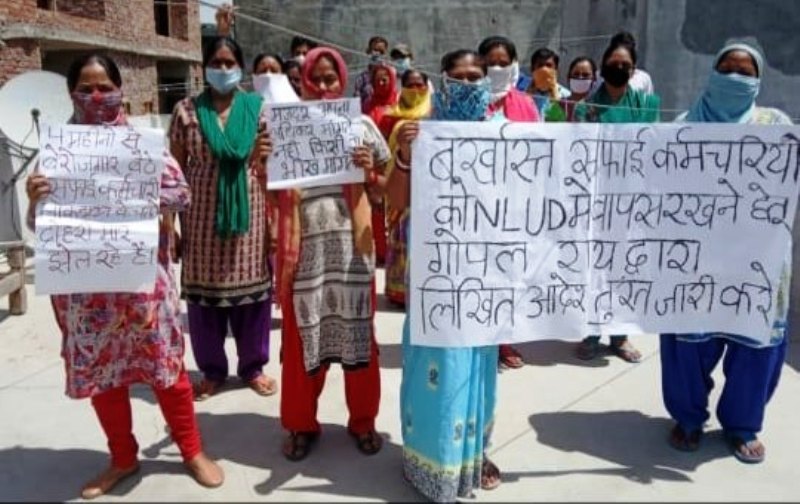 4 महीनों से
बेरोजगार बैठे
सफाई कर्मचारी
दोहरी मार
झेल रहे हैं।
मजदूर अपना
अधिकार मांगते
नहीं किसी से
भीख मांगते
बर्खास्त सफाई कर्मचारियों
को NLUD मे वापस रखने हेतु
गोपाल राय द्वारा
लिखित आदेश तुरंत जारी करे